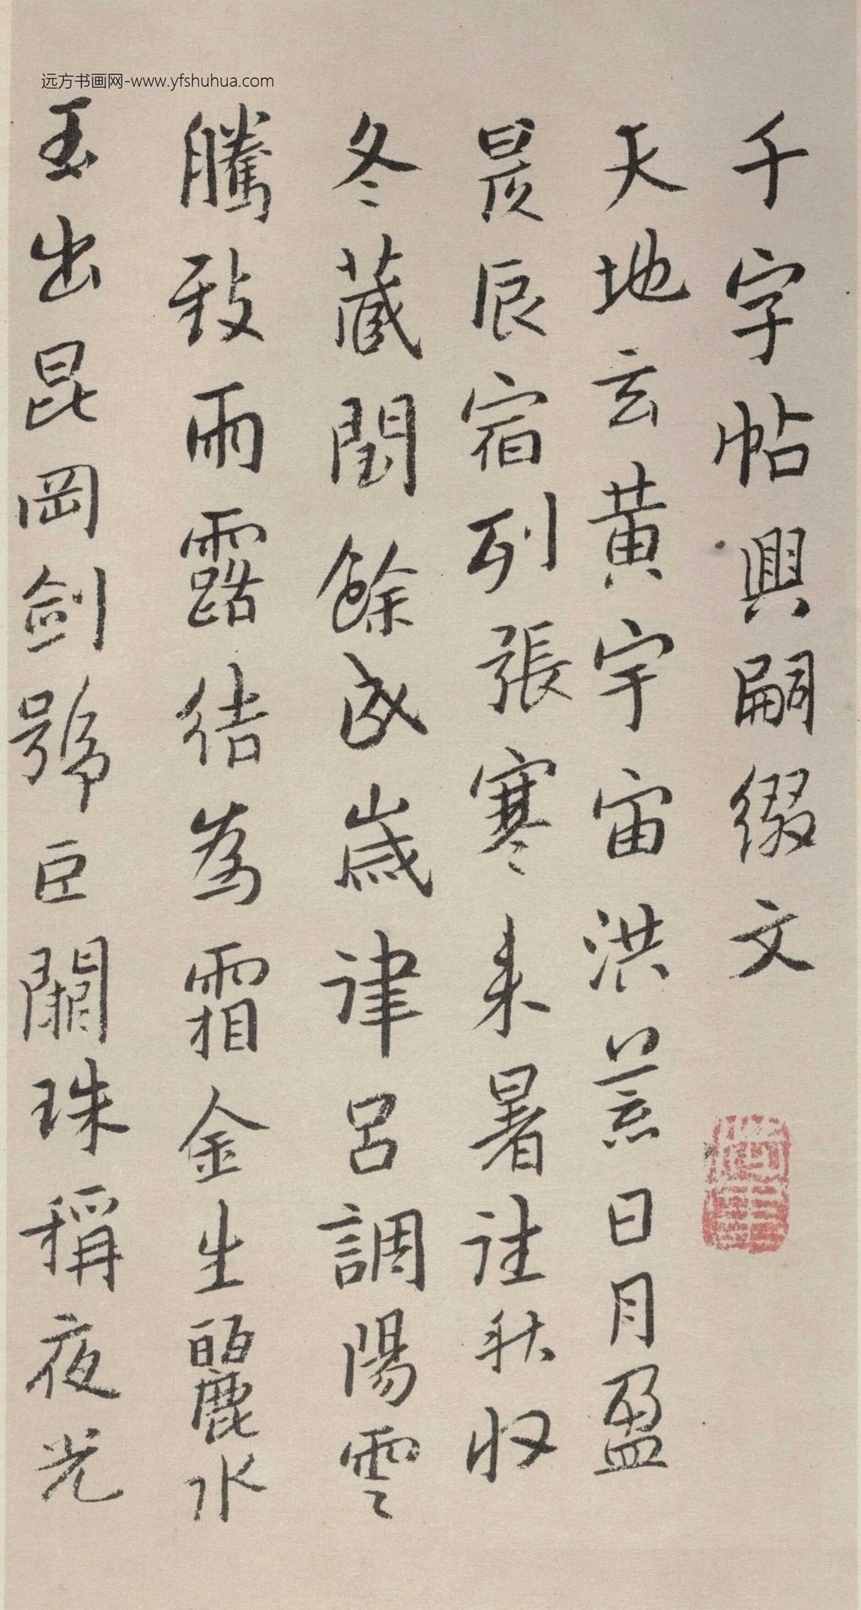 远方书画网-www.yfshuhua.com
千字帖興嗣綴文
天地玄黄宇宙洪荒日月盈
昃辰宿列張寒来暑往秋收
冬蔵閏餘成歳律呂調陽雲
騰致雨露结為霜金生麗水
玉出昆岡剑號巨闕珠稱夜光